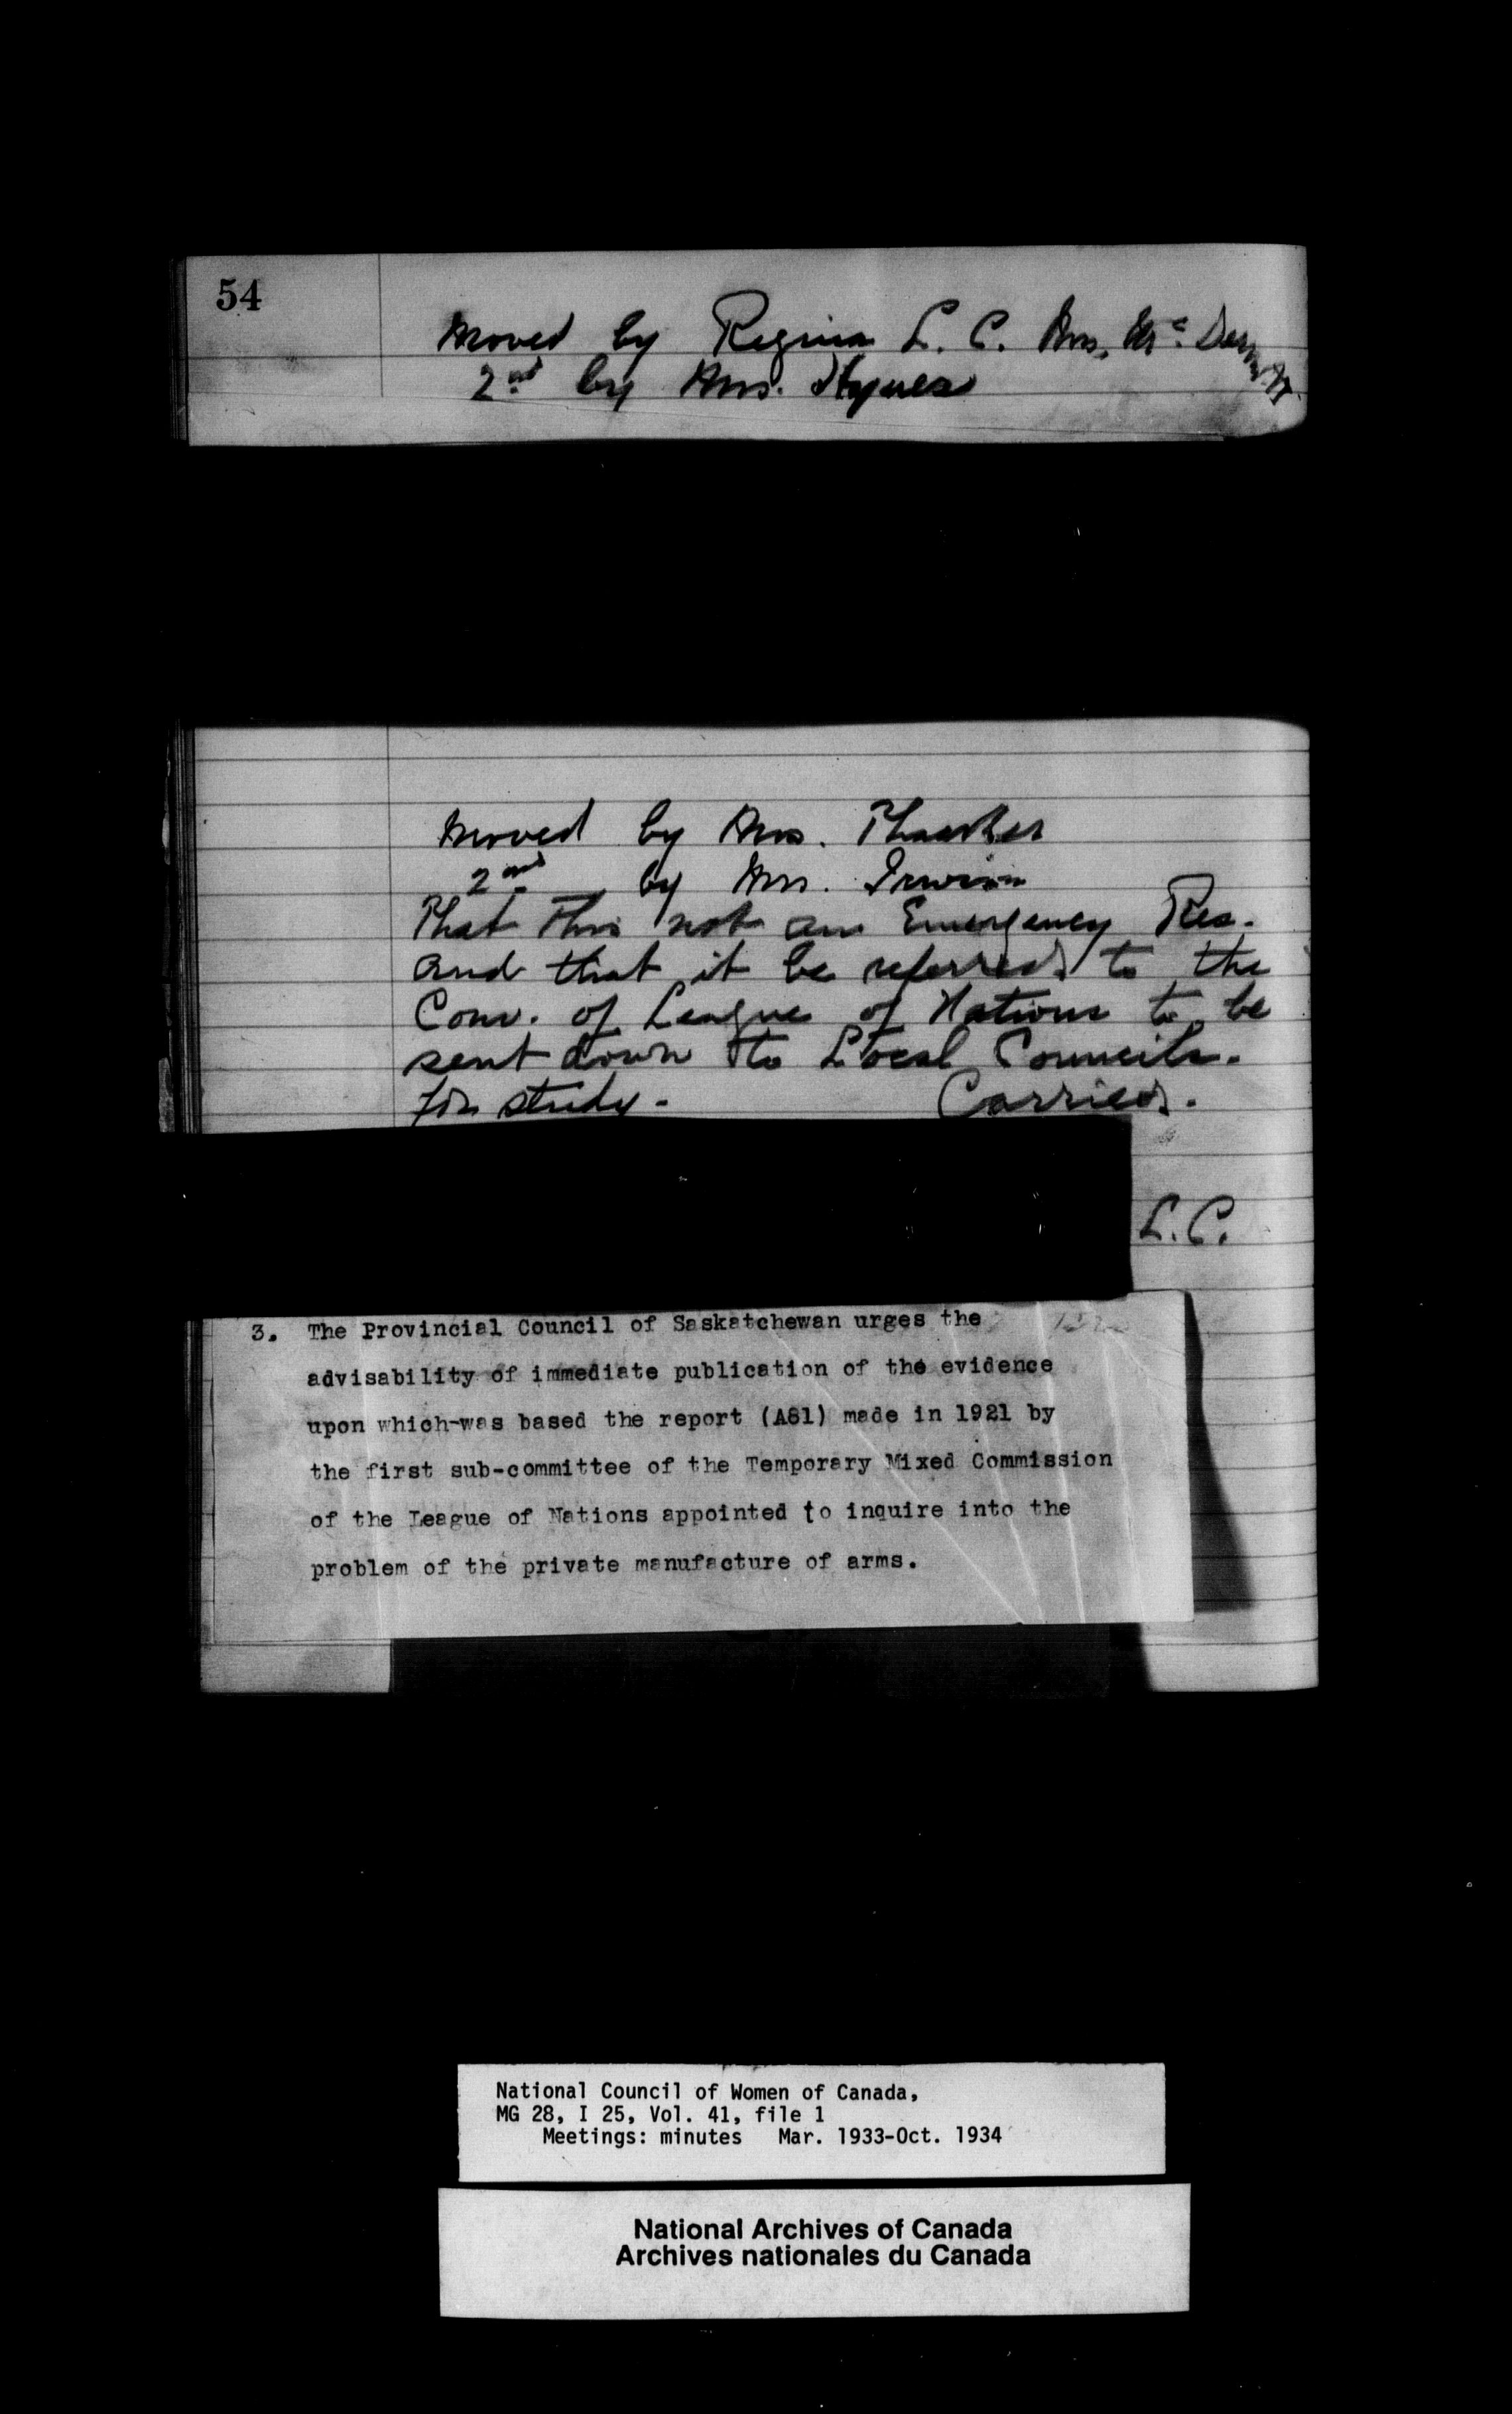 54
Moved by Regina L. C. Mrs. McDermott
2nd by Mrs. Hynes
Moved by Mrs.
2nd by Mrs. Irwin
That this not an Emergency Res.
and that it be referred to the
Conv. of League of Nations to be
sent down to Local Councils.
for study. Carried.
L.C.
3. The Provincial Council of Saskatchewan urges the
advisability of immediate publication of the evidence
upon which was based the report (A81) made in 1921 by
the first sub-committee of the Temporary Mixed Commission
of the League of Nations appointed to inquire into the
problem of the private manufacture of arms.
National Council of Women of Canada,
MG 28, I 25, Vol. 41, file 1
Meetings: minutes Mar. 1933-Oct. 1934
National Archives of Canada
Archives nationales du Canada